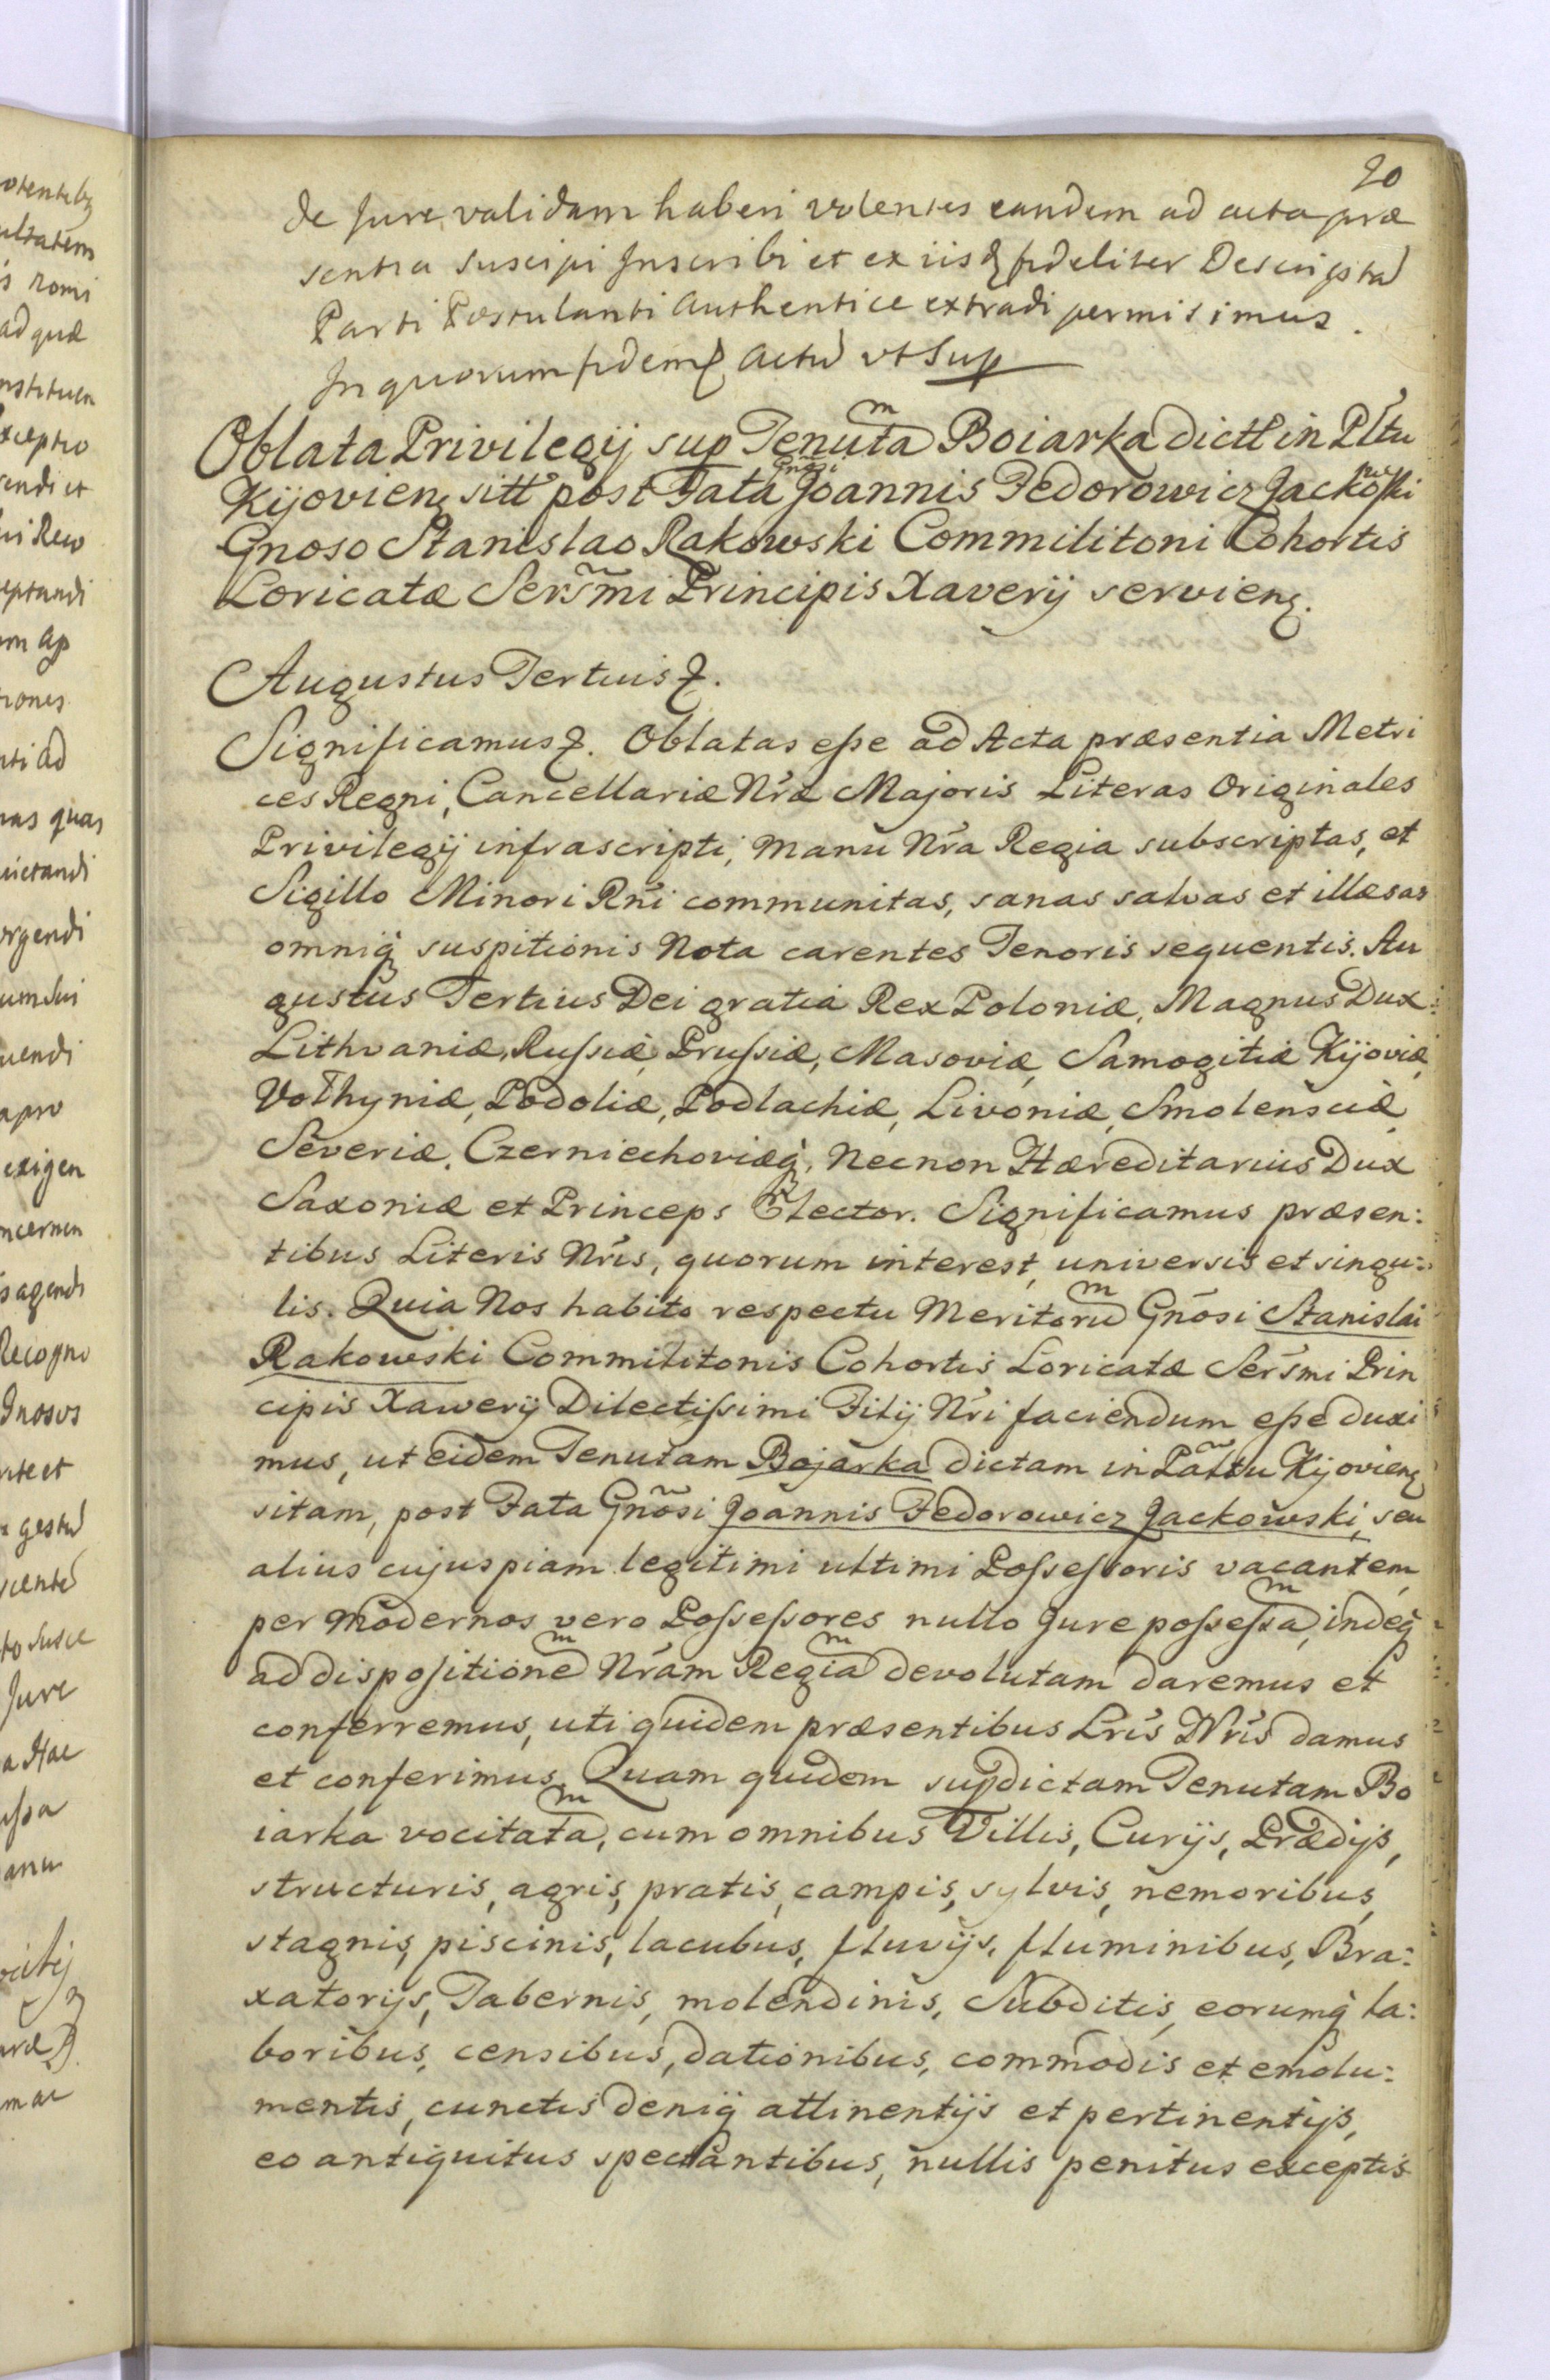 20
de Jure validam haberi volentes eandem ad acta præ
sentia suscipi Inscribi et ex iisq fideliter Descripta
Parti Postulanti Authentice extradi permisimus.
In quorum fidem Actu vt Sup
Oblata Privilegij sup Tenutam Boiarka dictt in Pltu
Kijovien sitt post Fata Gnosi Joannis Fedorowicz Jackowski
Gnoso Stanislao Rakowski Commilitoni Cohortis
Loricatæ Sersmi Principis Xaverij servien.
Augustus Tertius &.
Significamus &. Oblatas esse ad Acta præsentia Metri
ces Regni, Cancellariæ Nræ Majoris Literas Originales
Privilegij infrascripti, Manu Nra Regia subscriptas, et
Sigillo Minori Rni communitas, sanas salvas et illæsas
omniq suspitionis Nota carentes Tenoris sequentis. Au
gustus Tertius Dei gratia Rex Poloniæ, Magnus Dux:
Lithvaniæ, Russiæ, Prussiæ, Masoviæ, Samogitiæ Kijoviæ,
Volhyniæ, Podoliæ, Podlachiæ, Livoniæ, Smolensciæ,
Severiæ, Czerniechoviæq, Necnon Hæreditarius Dux
Saxoniæ et Princeps Elector. Significamus præsen:
tibus Literis Nris, quorum interest, universis et singu:
lis. Quia Nos habito respectu Meritorum Gnosi Stanislai
Rakowski Commilitonis Cohortis Loricatæ Sersmi Prin
cipis Xawerij Dilectissimi Filij Nri faciendum esse duxi
mus, ut eidem Tenutam Bojarka dictam in Palttu Kijovien
sitam, post Fata Gnosi Joannis Fedorowicz Jackowski, seu
alius cujuspiam legitimi ultimi Possessoris vacantem,
per modernos vero Possessores nullo Jure possessam, indeq
ad dispositionem Nram Regiam devolutam daremus et
conferremus, uti quidem præsentibus Lris Nris damus
et conferimus. Quam quidem supdictam Tenutam Bo
iarka vocitatam, cum omnibus Villis, Curijs, Prædijs,
structuris, agris, pratis, campis, sylvis, nemoribus,
stagnis, piscinis, lacubus, fluvijs, fluminibus, Bra:
xatorijs, Tabernis, molendinis, Subditis, eorumq la:
boribus, censibus, dationibus, commodis et emolu:
mentis, cunctis deniq attinentijs et pertinentijs,
eo antiquitus spectantibus, nullis penitus exceptis